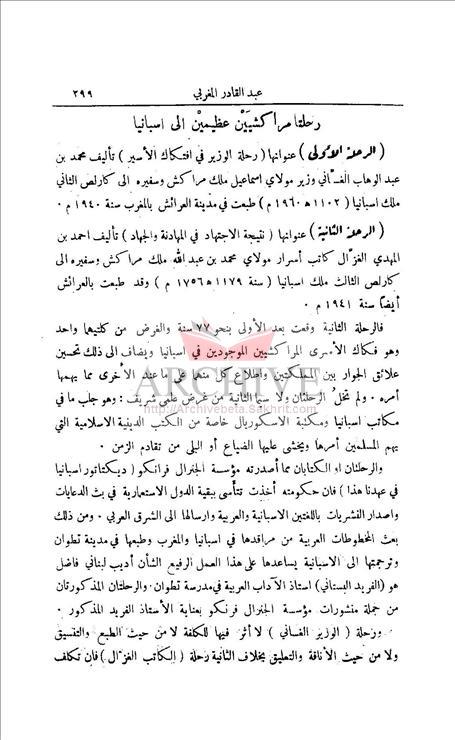 عبد القادر المغربي ٣٩٩
رحلتا مراكشيَيْن عظيمَيْن الى اسبانيا
( الرحلة الأولى ) عنوانها ( رحلة الوزير في افتكاك الأسير ) تأليف محمد بن
عبد الوهاب الغسّاني وزير مولاي اسماعيل ملك مراكش وسفيره الى كارلص الثاني
ملك اسبانيا ( ١١٠٢ ھ ١٩٦٠ م ) طبعت في مدينة العرائش بالمغرب سنة ١٩٤٠ م ٠
( الرحلة الثانية ) عنوانها ( نتيجة الاجتهاد في المهادنة والجهاد ) تأليف احمد بن
المهدي الغزّال كاتب أسرار مولاي محمد بن عبد الله ملك مراكش وسفيره الى
كارلص الثالث ملك اسبانيا ( سنة ١١٧٩ ھ ١٧٥٦ م ) وقد طبعت بالعرائش
أيضًا سنة ١٩٤١ م ٠
فالرحلة الثانية وقعت بعد الأولى بنحو ٧٧ سنة والغرض من كلتيهما واحد
وهو فكاك الأسرى المراكشيين الموجودين في اسبانيا ويضاف الى ذلك تحسين
علائق الجوار بين المملكتين واطلاع كل منها على ما عند الأخرى مما يهمها
ARCHIVE
أمره ٠ ولم تخلُ الرحلتان ولا سيما الثانية من غرض علمي شريف : وهو جلب ما في
http://Archivebeta.Sakhrit.com
مكاتب اسبانيا ومكتبة الاسكوريال خاصة من الكتب الدينية الاسلامية التي
يهم المسلمين أمرها ويخشى عليها الضياع أو البلى من تقادم الزمن ٠
والرحلتان او الكتابان مما أصدرته مؤسسة الجنرال فرانكو ( ديكتاتور اسبانيا
في عهدنا هذا ) فان حكومته أخذت تتأسى ببقية الدول الاستعارية في بث الدعايات
واصدار النشريات باللغتين الاسبانية والعربية وارسالها الى الشرق العربي ٠ ومن ذلك
بعث المخطوطات العربية من مراقدها في اسبانيا والمغرب وطبعها في مدينة تطوان
وترجمتها الى الاسبانية يساعدها على هذا العمل الرفيع الشأن أديب لبناني فاضل
هو ( الفريد البستاني ) استاذ الآداب العربية في مدرسة تطوان ٠ والرحلتان المذكورتان
من جملة منشورات مؤسسة الجنرال فرنكو بعناية الأستاذ الفريد المذكور ٠
ورحلة ( الوزير الغساني ) لا أثر فيها للكلفة لا من حيث الطبع والتنسيق
ولا من حيث الأناقة والتعليق بخلاف الثانية رحلة ( الكاتب الغزّال ) فان تكلف